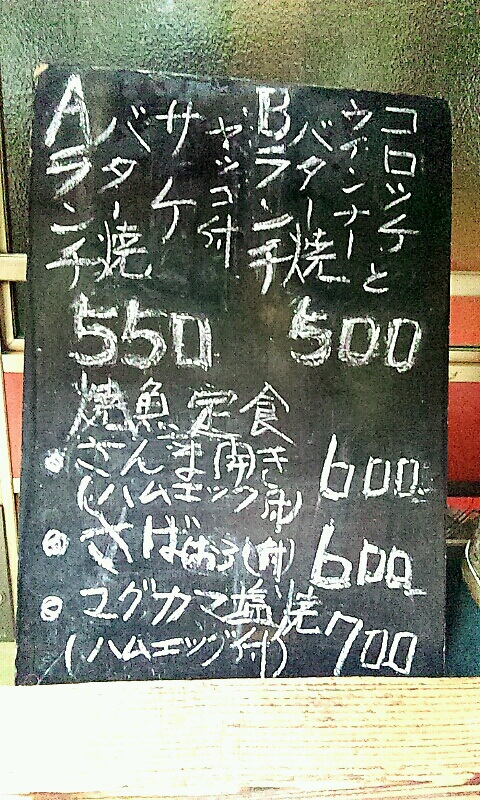 Aランチ
ヤッコ付
サケ
バター焼
550
Bランチ
コロッケと
ウインナー
バター焼
500
焼魚定食
●さんま開き
(ハムエッグ付)
600
●さばおろし(付) 600
●マグカマ塩焼
(ハムエッグ付) 700